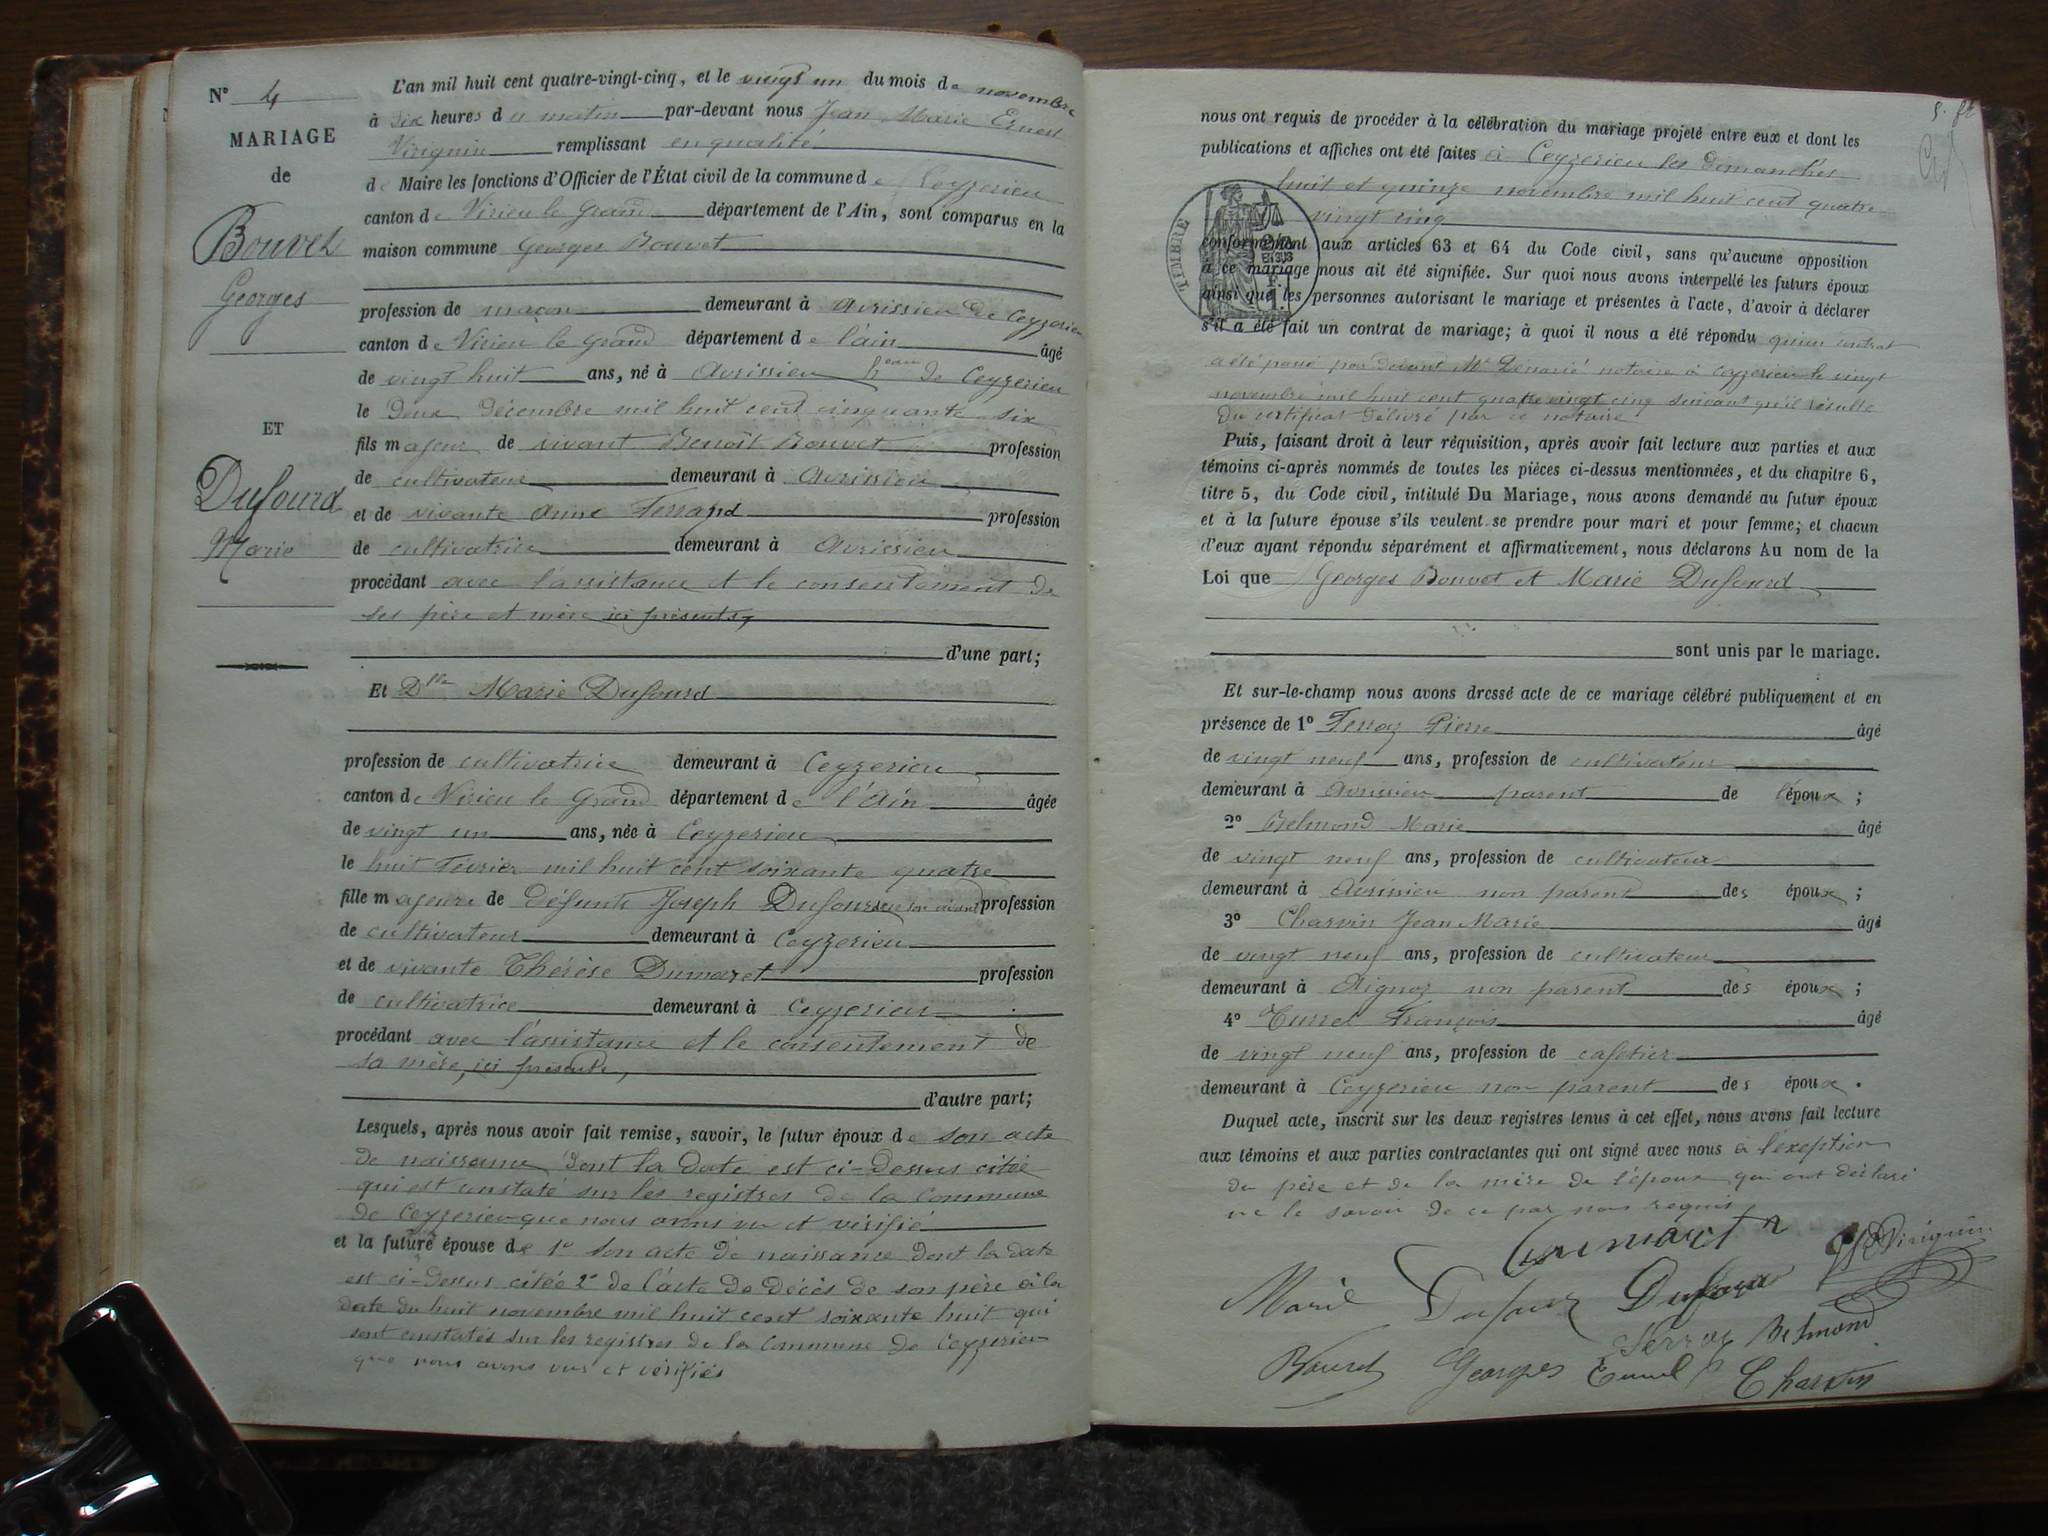 N° 4
MARIAGE
de
Bouvet
Georges
ET
Dufourd
Marie
L'an mil huit cent quatre-vingt-cinq, et le vingt un du mois de novembre
à six heures du matin par-devant nous Jean Marie Ernest
Virignin remplissant en qualité
de Maire les fonctions d'Officier de l'État civil de la commune de Ceyzerieu
canton de Virieu le Grand département de l'Ain, sont comparus en la
maison commune Georges Bouvet
profession de maçon demeurant à Avrissieu de Ceyzerieu
canton de Virieu le Grand département de l'ain âgé
de vingt huit ans, né à Avrissieu heau de Ceyzerieu
le deux décembre mil huit cent cinquante six
fils majeur de vivant Benoît Bouvet profession
de cultivateur demeurant à Avrissieu
et de vivante Anne profession
de cultivatrice demeurant à Avrissieu
procédant avec l'assistance et le consentement de
ses père et mère ici présents,
d'une part;
Et Dlle Marie Dufourd
profession de cultivatrice demeurant à Ceyzerieu
canton de Virieu le Grand département de l'Ain âgée
de vingt un ans, née à Ceyzerieu
le huit Février mil huit cent soixante quatre
fille majeure de défunt Joseph Dufourd en son vivant profession
de cultivateur demeurant à Ceyzerieu
et de vivante Thérèse Dumaret profession
de cultivatrice demeurant à Ceyzerieu
procédant avec l'assistance et le consentement de
sa mère, ici présente,
d'autre part;
Lesquels, après nous avoir fait remise, savoir, le futur époux de son acte
de naissance dont la date est ci-dessus citée
qui est constaté sur les registres de la Commune
de Ceyzerieu que nous avons vu et vérifié
et la future épouse de 1° son acte de naissance dont la date
est ci-dessus citée 2° de l'acte de décès de son père à la
date du huit novembre mil huit cent soixante huit qui
sont constatés sur les registres de la Commune de Ceyzerieu
que nous avons vus et vérifiés
nous ont requis de procéder à la célébration du mariage projeté entre eux et dont les
publications et affiches ont été faites à Ceyzerieu les dimanches
huit et quinze novembre mil huit cent quatre
vingt cinq
TIMBRE
conformément aux articles 63 et 64 du Code civil, sans qu'aucune opposition
à ce mariage nous ait été signifiée. Sur quoi nous avons interpellé les futurs époux
ainsi que les personnes autorisant le mariage et présentes à l'acte, d'avoir à déclarer
s'il a été fait un contrat de mariage; à quoi il nous a été répondu qu'un contrat
a été passé par devant Me notaire à Ceyzerieu le vingt
novembre mil huit cent quatre vingt cinq suivant qu'il résulte
du certificat délivré par ce notaire
Puis, faisant droit à leur réquisition, après avoir fait lecture aux parties et aux
témoins ci-après nommés de toutes les pièces ci-dessus mentionnées, et du chapitre 6,
titre 5, du Code civil, intitulé Du Mariage, nous avons demandé au futur époux
et à la future épouse s'ils veulent se prendre pour mari et pour femme; et chacun
d'eux ayant répondu séparément et affirmativement, nous déclarons Au nom de la
Loi que Georges Bouvet et Marie Dufourd
sont unis par le mariage.
Et sur-le-champ nous avons dressé acte de ce mariage célébré publiquement et en
présence de 1° Ferroz Pierre âgé
de vingt neuf ans, profession de cultivateur
demeurant à Avrissieu parent de l'époux;
2° Belmond Marie âgé
de vingt neuf ans, profession de cultivateur
demeurant à Avrissieu non parent des époux;
3° Charvin Jean Marie âgé
de vingt neuf ans, profession de cultivateur
demeurant à Aignoz non parent des époux;
4° François âgé
de vingt neuf ans, profession de cafetier
demeurant à Ceyzerieu non parent des époux.
Duquel acte, inscrit sur les deux registres tenus à cet effet, nous avons fait lecture
aux témoins et aux parties contractantes qui ont signé avec nous à l'exeption
du père et de la mère de l'époux qui ont déclaré
ne le savoir de ce par nous requis
Dumaret Virignin
Marie Dufour Dufour
Ferroz Belmond
Bouvet Georges Charvin